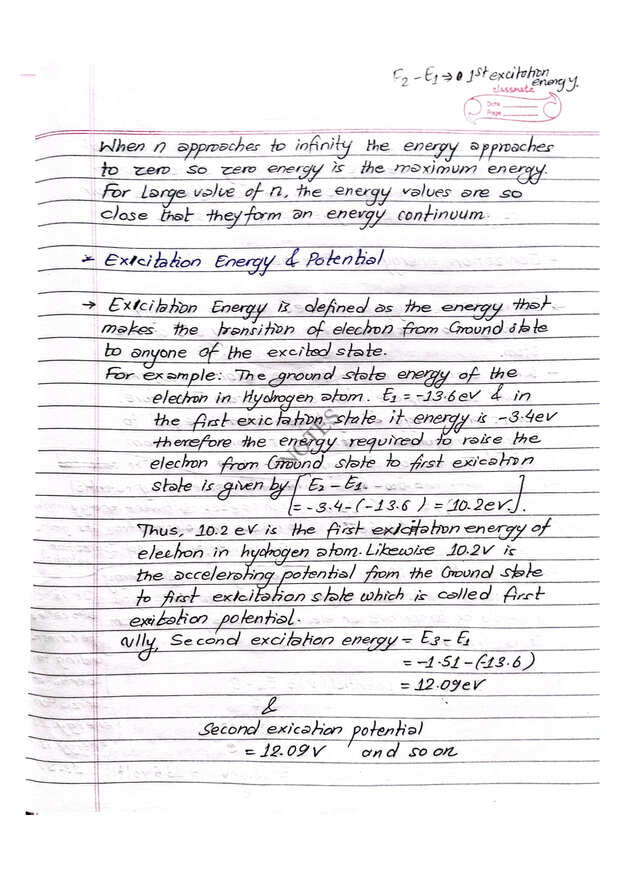 E2 - E1 → 1st excitation
energy.
classmate
Date
Page
When n approaches to infinity the energy approaches
to zero so zero energy is the maximum energy.
For large value of n, the energy values are so
close that they form an energy continuum.
* Exicitation Energy & Potential
→ Exicitation Energy is defined as the energy that
makes the transition of electron from Ground state
to anyone of the excited state.
For example: The ground state energy of the
electron in Hydrogen atom. E1 = -13.6eV & in
the first exictation state it energy is -3.4eV
therefore the energy required to raise the
electron from Ground state to first exication
state is given by [ E2 - E1.
= -3.4-(-13.6) = 10.2eV.].
Thus, 10.2 eV is the first excitation energy of
electron in hydrogen atom. Likewise 10.2V is
the accelerating potential from the Ground state
to first exicitation state which is called first
exitation potential.
\\\lly, Second excitation energy = E3 - E1
= -1.51 - (-13.6)
= 12.09eV
&
Second exication potential
= 12.09V and so on
NOTES